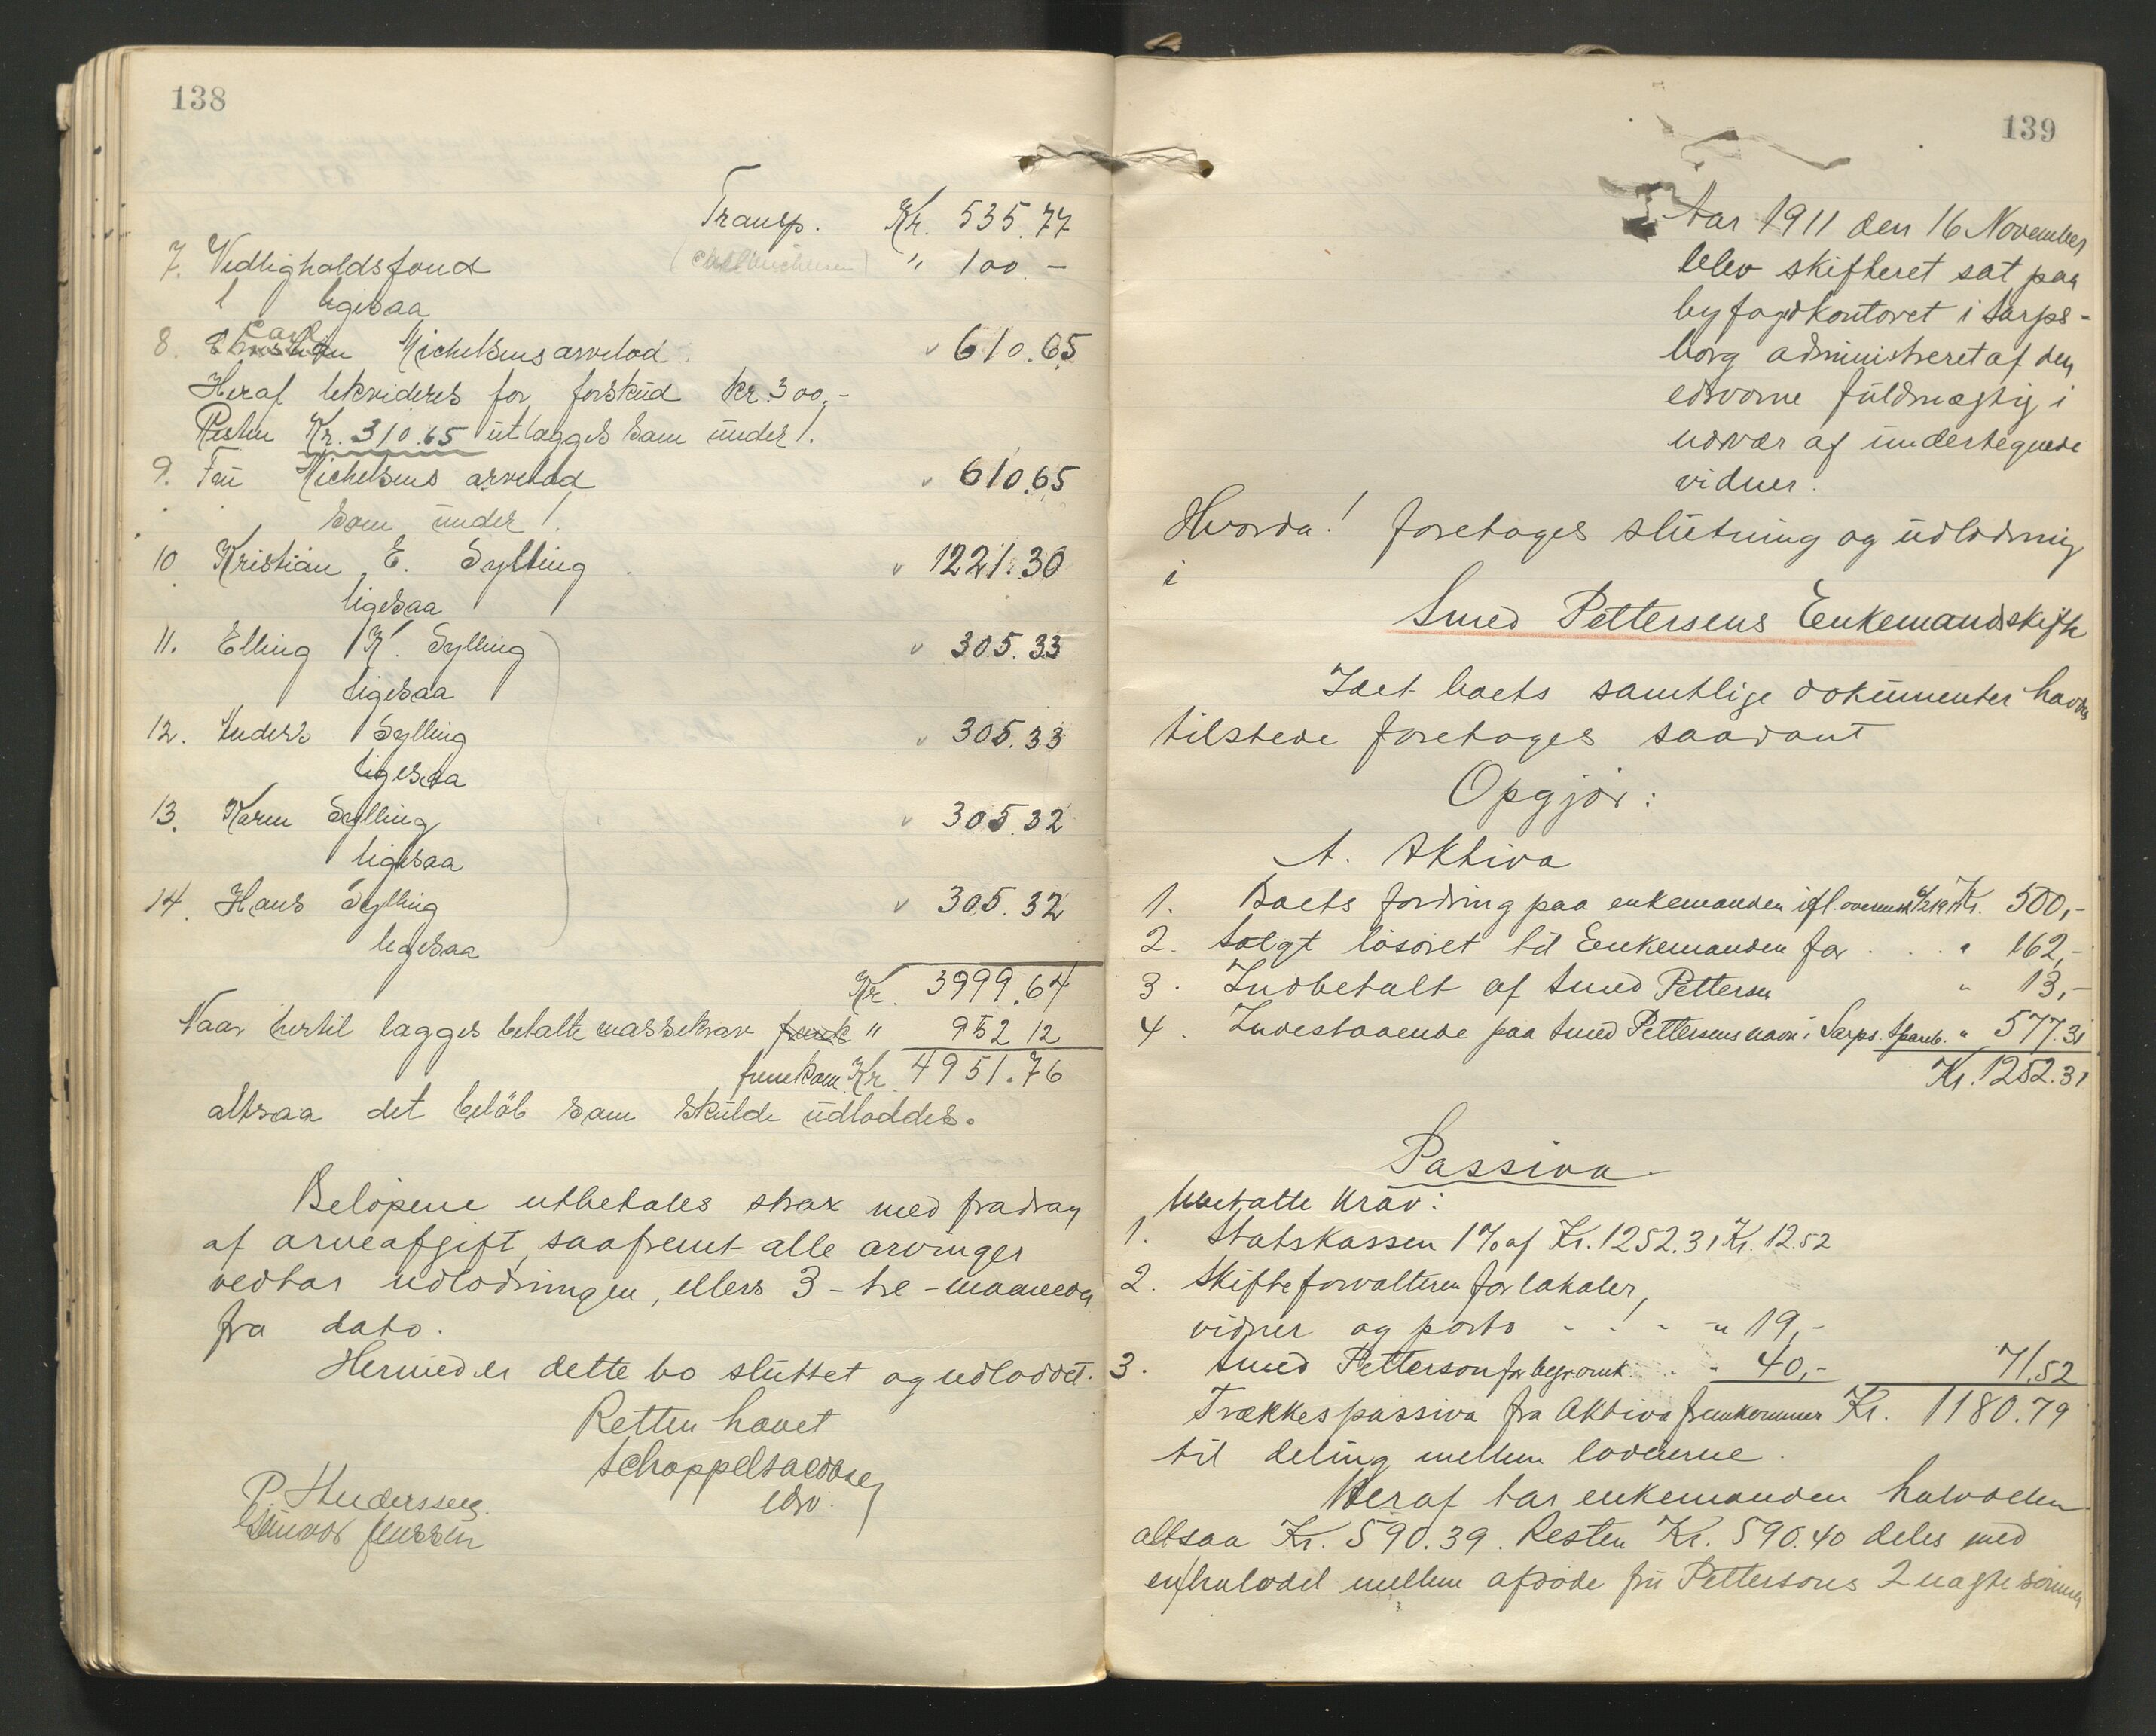 138
Transp. Kr. 535.77
7. Vedligholdsfond " 100.-
ligesaa
8. Carl Michelsens arvelod " 610.65
Heraf likvideres for forskud kr. 300,-
Resten Kr. 310.65 utlægges som under 1.
9. Fru Michelsens arvelod " 610.65
som under 1.
10 Kristian E. Sylling " 1221.30
ligesaa
11. Elling K. Sylling " 305.33
ligesaa
12. Anders Sylling " 305.33
ligesaa
13. Karen Sylling " 305.32
ligesaa
14. Hans Sylling " 305.32
ligesaa
Kr. 3999.64
Naar hertil lægges betalte massekrav " 952 12
fremkom Kr. 4951.76
altsaa det beløb som skulde udloddes.
Beløpene utbetales strax med fradrag
af arveafgift, saafremt alle arvinger
vedtar udlodningen, ellers 3 - tre - maaneder
fra dato.
Hermed er dette bo sluttet og udloddet.
Retten hævet
edsv.
P. Anderssen
Gunvor Jenssen
139
Aar 1911 den 16 November
blev skifteret sat paa
byfogdkontoret i Sarps-
borg administreret af den
edsvorne fuldmægtig i
nærvær af undertegnede
vidner.
Hvorda! foretages slutning og udlodning
i
Smed Pettersens Enkemandskifte
Idet boets samtlige dokumenter havdes
tilstede foretoges saadant
Opgjør:
A. Aktiva
1. Boets fordring paa enkemanden ifl. Kr. 500,-
2. Solgt løsøret til Enkemanden for . . . " 162,-
3. Indbetalt af Smed Pettersen " 13,-
4. Indestaaende paa Smed Pettersens navn i Sarps. Spareb. " 577.31
Kr. 1252.31
Passiva
Ubetalte krav:
1. Statskassen 1% af Kr. 1252.31 Kr. 12.52
2. Skifteforvalteren for lokaler,
vidner og porto - - - " 19,-
3. Smed Petterson for begr. omk. . . " 40,- 71.52
Trækkes passiva fra Aktiva fremkommer Kr. 1180.79
til deling mellem lodeierne.
Heraf tar enkemanden halvdelen
altsaa Kr. 590.39. Resten Kr. 590.40 deles med
en halvdel mellem afdøde fru Pettersons 2 uægte sønner